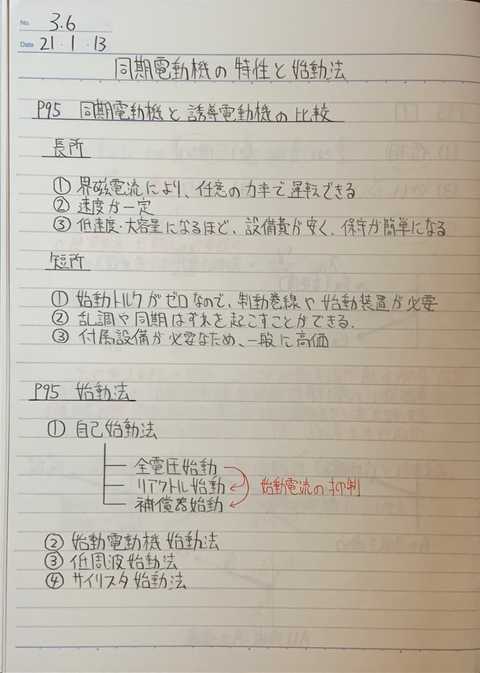 No. 3.6
Date 21・1・13
同期電動機の特性と始動法
P95 同期電動機と誘導電動機の比較
長所
① 界磁電流により、任意の力率で運転できる
② 速度が一定
③ 低速度・大容量になるほど、設備費が安く、保守が簡単になる
短所
① 始動トルクがゼロなので、制動巻線や始動装置が必要
② 乱調や同期はずれを起こすことができる.
③ 付属設備が必要なため、一般に高価
P95 始動法
① 自己始動法
全電圧始動
リアクトル始動 始動電流の抑制
補償器始動
② 始動電動機始動法
③ 低周波始動法
④ サイリスタ始動法